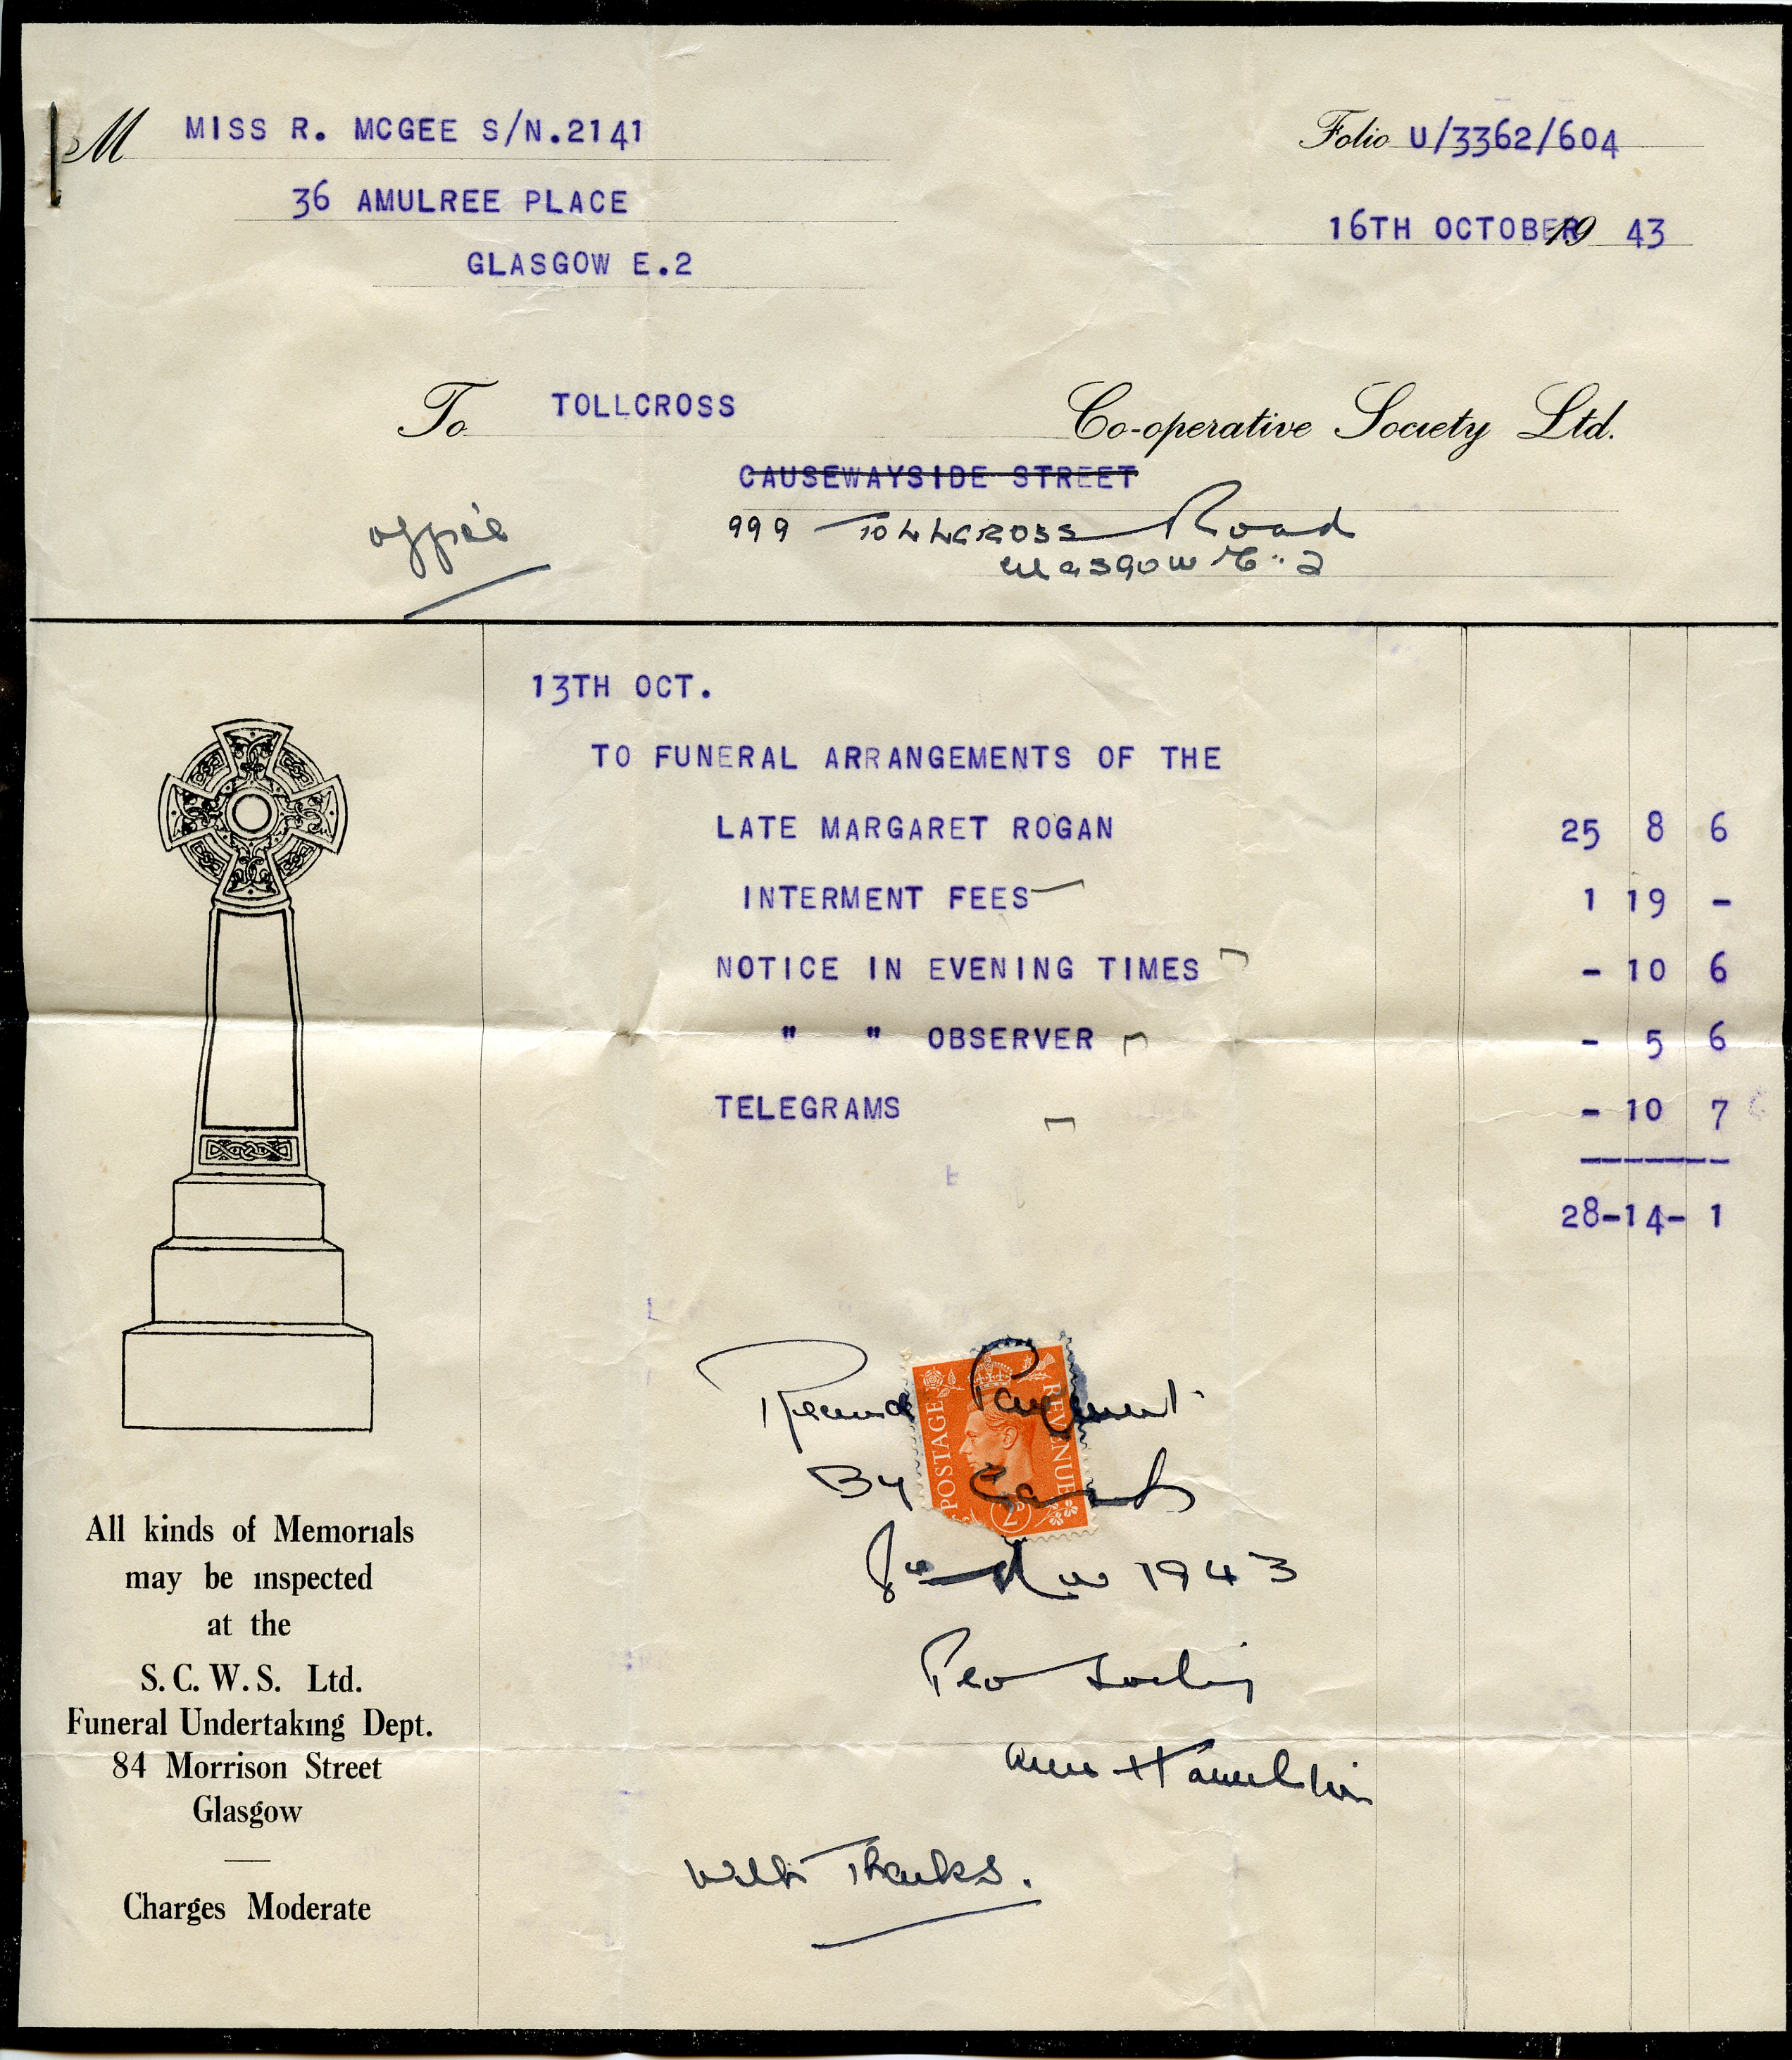 M MISS R. MCGEE S/N.2141
Folio U/3362/604
36 AMULREE PLACE
16TH OCTOBER 19 43
GLASGOW E.2
To TOLLCROSS Co-operative Society Ltd.
CAUSEWAYSIDE STREET
office
999 TOLLCROSS Road
Glasgow E..2
13TH OCT.
TO FUNERAL ARRANGEMENTS OF THE
LATE MARGARET ROGAN 25 8 6
INTERMENT FEES 1 19 -
NOTICE IN EVENING TIMES - 10 6
" " OBSERVER - 5 6
TELEGRAMS - 10 7
28-14- 1
All kinds of Memorials
may be inspected
at the
S.C.W.S. Ltd.
Funeral Undertaking Dept.
84 Morrison Street
Glasgow
Charges Moderate
POSTAGE REVENUE
2D
Received Payment
By
1943
Pro Society
Hamilton
With Thanks.